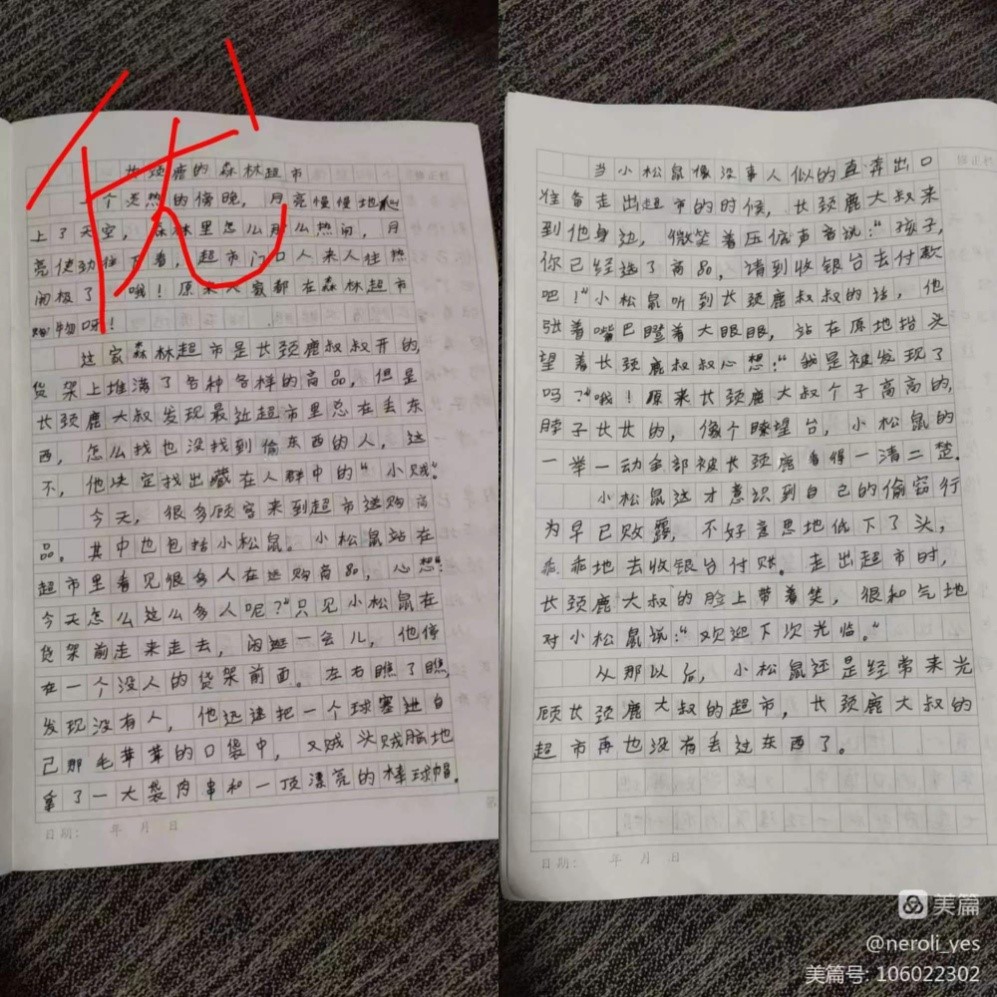 优
长颈鹿的森林超市
一个炎热的傍晚，月亮慢慢地爬
上了天空，森林里怎么那么热闹，月
亮使劲往下看，超市门口人来人往热
闹极了，哦！原来大家都在森林超市
购物呀！
这家森林超市是长颈鹿叔叔开的，
货架上堆满了各种各样的商品，但是
长颈鹿大叔发现最近超市里总在丢东
西，怎么找也没找到偷东西的人，这
不，他决定找出藏在人群中的“小贼”
今天，很多顾客来到超市选购商
品。其中也包括小松鼠。小松鼠站在
超市里看见很多人在选购商品，心想：“
今天怎么这么多人呢？”只见小松鼠在
货架前走来走去，闲逛一会儿，他停
在一个没人的货架前面。左右瞧了瞧
发现没有人，他迅速把一个球塞进自
己那毛茸茸的口袋中，又贼头贼脑地
拿了一大袋肉串和一顶漂亮的棒球帽。
日期： 年 月 日
当小松鼠像没事人似的直奔出口
准备走出超市的时候，长颈鹿大叔来
到他身边，微笑着压低声音说：“孩子，
你已经选了商品，请到收银台去付款
吧！”小松鼠听到长颈鹿叔叔的话，他
张着嘴巴瞪着大眼眼，站在原地抬头
望着长颈鹿叔叔心想：“我是被发现了
吗？”哦！原来长颈鹿大叔个子高高的，
脖子长长的，像个瞭望台，小松鼠的
一举一动全部被长颈鹿看得一清二楚。
小松鼠这才意识到自己的偷窃行
为早已败露，不好意思地低下了头，
乖乖地去收银台付账。走出超市时，
长颈鹿大叔的脸上带着笑，很和气地
对小松鼠说：“欢迎下次光临。”
从那以后，小松鼠还是经常来光
顾长颈鹿大叔的超市，长颈鹿大叔的
超市再也没有丢过东西了。
日期： 年 月 日
美篇
@neroli_yes
美篇号: 106022302